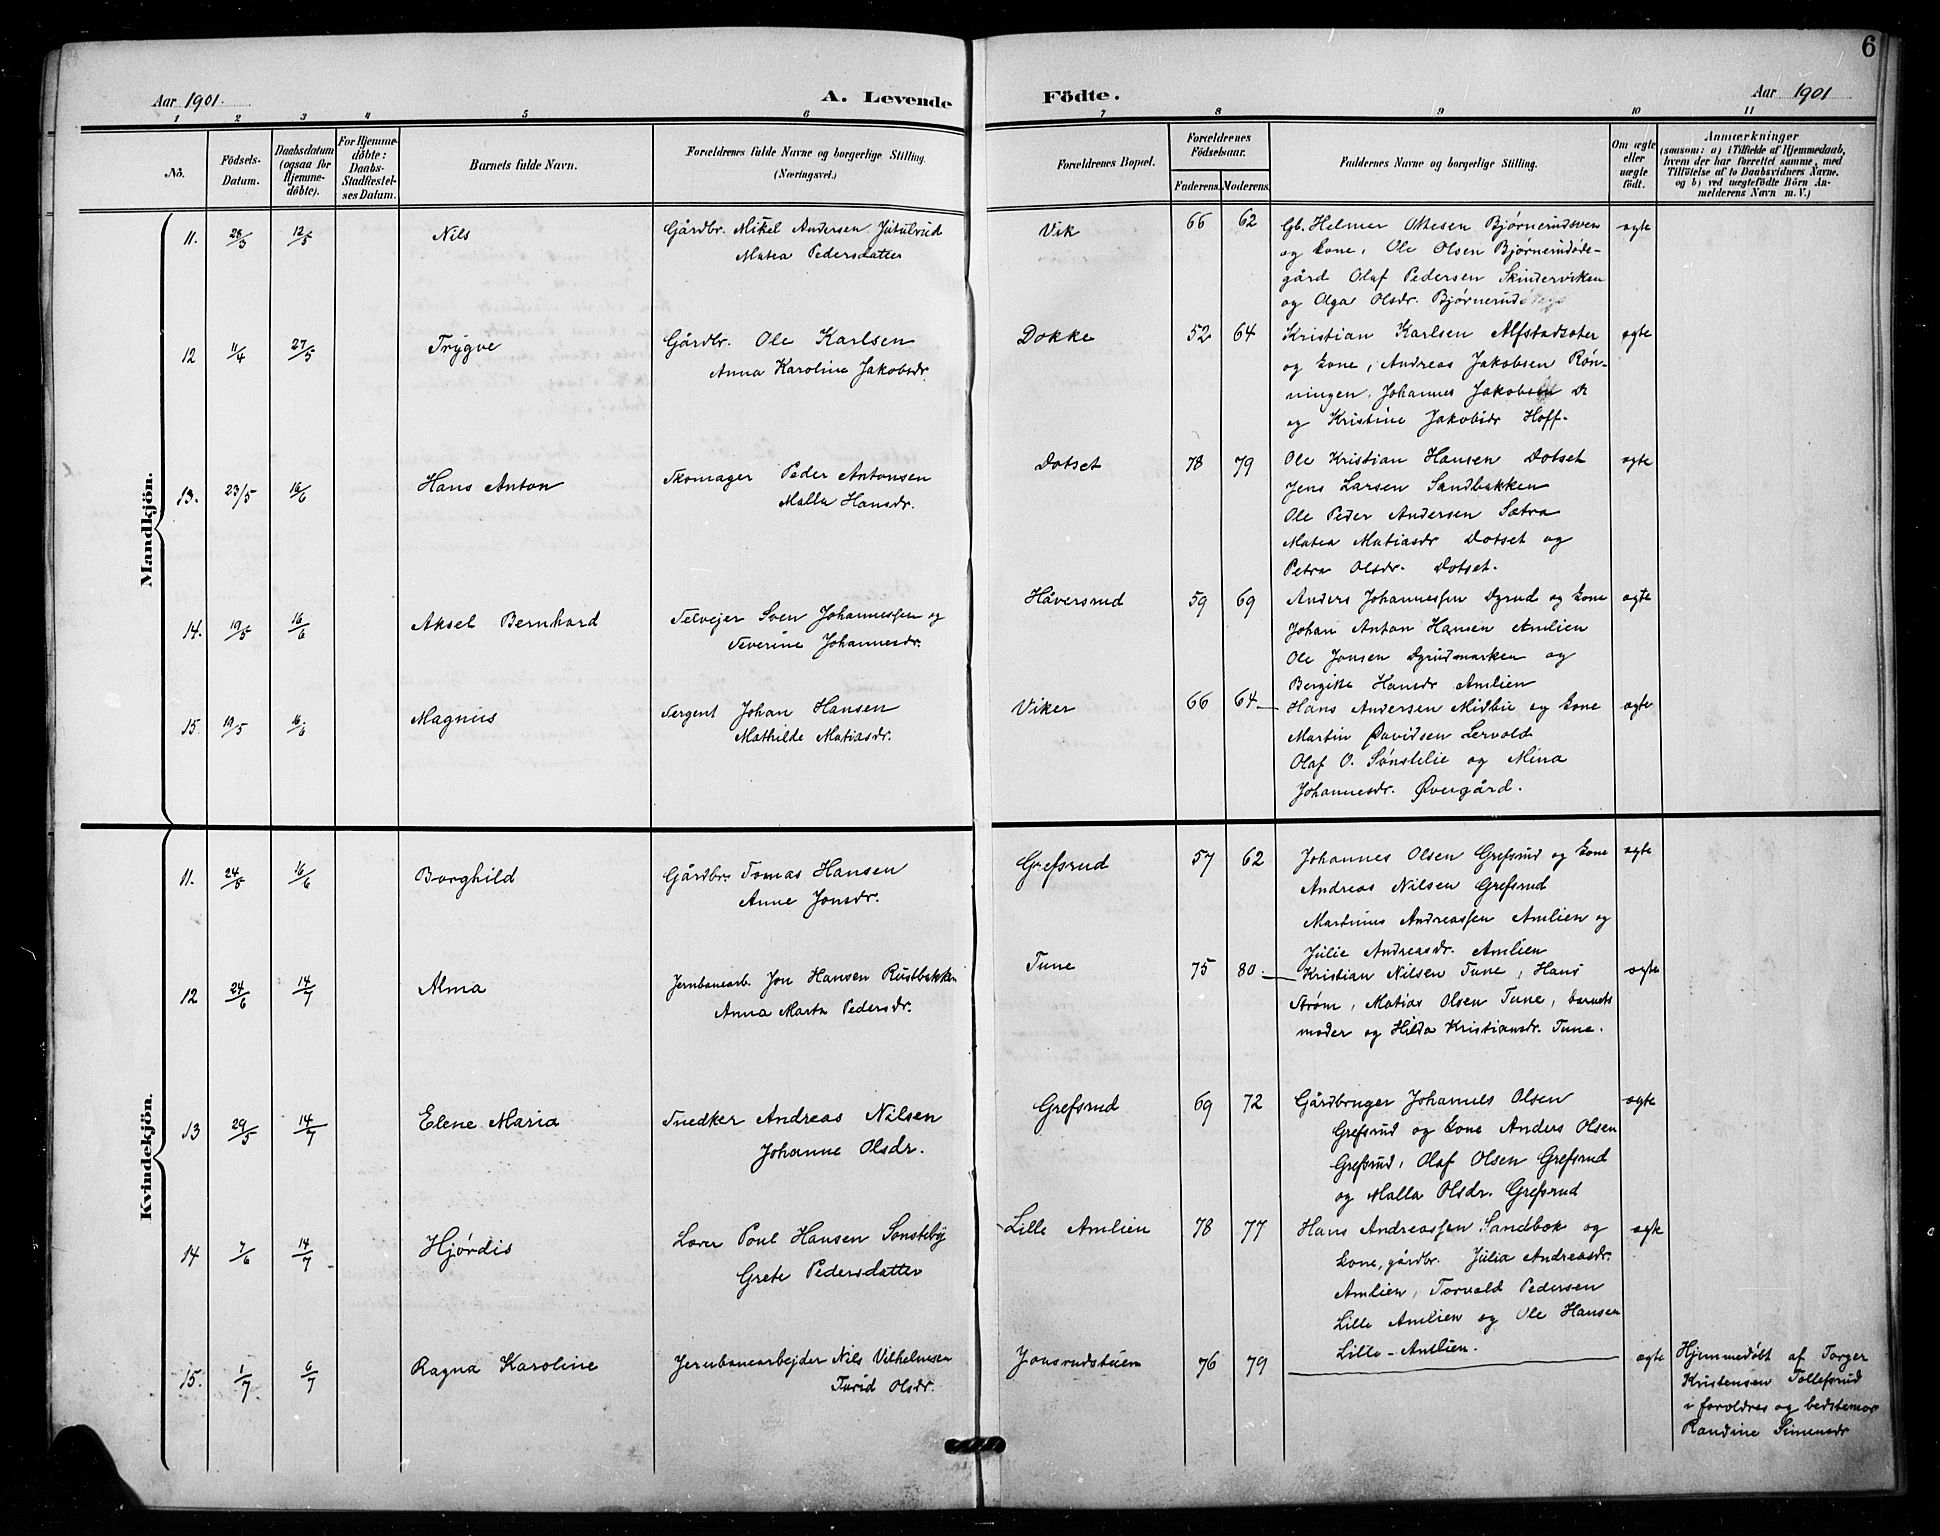 6
Aar 1901.
A. Levende
Födte.
Aar 1901
1 2 3 4 5 6 7 8 9 10 11
No.
Födsels-
Datum.
Daabsdatum
(ogsaa for
Hjemme-
döbte).
For Hjemme-
döbte:
Daabs-
Stadfæstel-
ses Datum.
Barnets fulde Navn.
Forældrenes fulde Navne og borgerlige Stilling.
(Næringsvei.)
Forældrenes Bopæl.
Forældrenes
Födselsaar.
Faderens. Moderens.
Faddernes Navne og borgerlige Stilling.
Om ægte
eller
uægte
födt.
Anmærkninger
(saasom: a) i Tilfælde af Hjemmedaab,
hvem der har forrettet samme, med
Tilföielse af to Daabsvidners Navne.
og b) ved uægtefödte Börn An-
melderens Navn m. V.)
Mandkjön.
11. 28/3 12/5 Nils
Gårdbr. Mikel Andersen Jutulrud
Matea Pedersdatter
Vik 66 62
Gb. Helmer Ottesen Bjørnerudsven
og kone, Ole Olsen Bjørnerudøde-
gård Olaf Pedersen Skinderviken
og Olga Olsdr. Bjørnerud
ægte
12 11/4 27/5 Trygve
Gårdbr. Ole Karlsen
Anna Karoline Jakobsdr.
Dokke 52 64
Kristian Karlsen Alfstadsæter
og kone, Andreas Jakobsen Røn-
ningen, Johannes Jakobsen D
og Kristine Jakobsdr Hoff.
ægte
13. 23/5 16/6 Hans Anton
Skomager Peder Antonsen
Malla Hansdr.
Dotset 78 79
Ole Kristian Hansen Dotset
Jens Larsen Sandbakken
Ole Peder Andersen Sætra
Matea Matiasdr Dotset og
Petra Olsdr. Dotset.
ægte
14. 19/5 16/6 Aksel Bernhard
Selvejer Sven Johannessen og
Severine Johannesdr.
Håversrud 59 69
Anders Johannessen Dyrud og kone
Johan Anton Hansen Amlien
Ole Jonsen Dyrudmarken og
Bergitte Hansdr Amlien
ægte
15. 19/5 16/6 Magnus
Sergent Johan Hansen
Mathilde Matiasdr.
Viker 66 64
Hans Andersen Midbie og kone
Martin Davidsen Lervold
Olaf O. Sønstelie og Mina
Johannesdr. Øvergård.
ægte
Kvindekjön.
11. 24/5 16/6 Borghild
Gårdbr. Tomas Hansen
Anne Jonsdr.
Grefsrud 57 62
Johannes Olsen Grefsrud og kone
Andreas Nilsen Grefsrud
Martinus Andreassen Amlien og
Julie Andreasdr. Amlien
ægte
12 24/6 14/7 Alma
Jernbanearb. Jon Hansen Rustbakken
Anna Marta Pedersdr.
Tune 75 80
Kristian Nilsen Tune, Hans
Strøm, Matias Olsen Tune, barnets
moder og Hilda Kristiansdr. Tune.
ægte
13 29/5 14/7 Elene Maria
Snedker Andreas Nilsen
Johanne Olsdr.
Grefsrud 69 72
Gårdbruger Johannes Olsen
Grefsrud og kone Anders Olsen
Grefsrud, Olaf Olsen Grefsrud
og Malla Olsdr. Grefsrud
ægte
14 7/6 14/7 Hjørdis
Lærer Poul Hansen Sønsteby
Grete Pedersdatter
Lille Amlien 78 77
Hans Andreassen Sandbæk og
kone, gårdbr. Julia Andreasdr.
Amlien, Torvald Pedersen
Lille Amlien og Ole Hansen
Lille-Amlien.
ægte
15. 1/7 6/7 Ragna Karoline
Jernbanearbejder Nils Vilhelmsen
Turid Olsdr.
Jonsrudstuen 76 79
ægte
Hjemmedøbt af Torger
Kristensen Tollefsrud
i forældres og bedstemor
Randine Simensdr